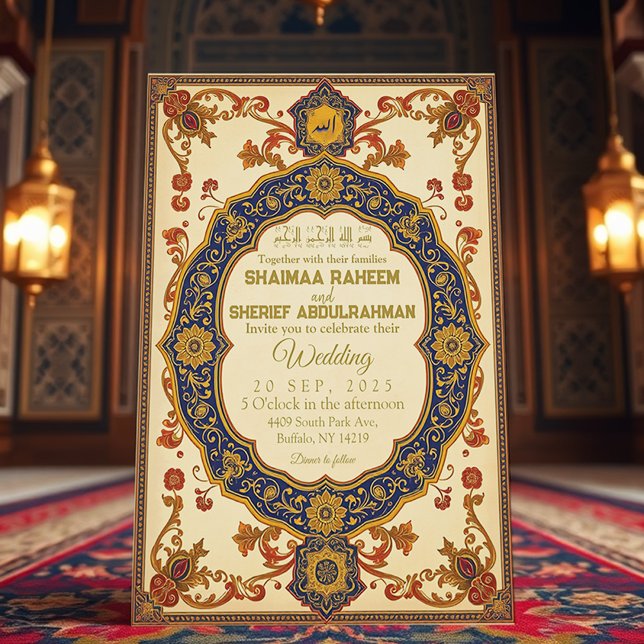 الله
بسم الله الرحمن الرحيم
Together with their families
SHAIMAA RAHEEM
and
SHERIEF ABDULRAHMAN
Invite you to celebrate their
Wedding
20 SEP, 2025
5 O'clock in the afternoon
4409 South Park Ave,
Buffalo, NY 14219
Dinner to follow